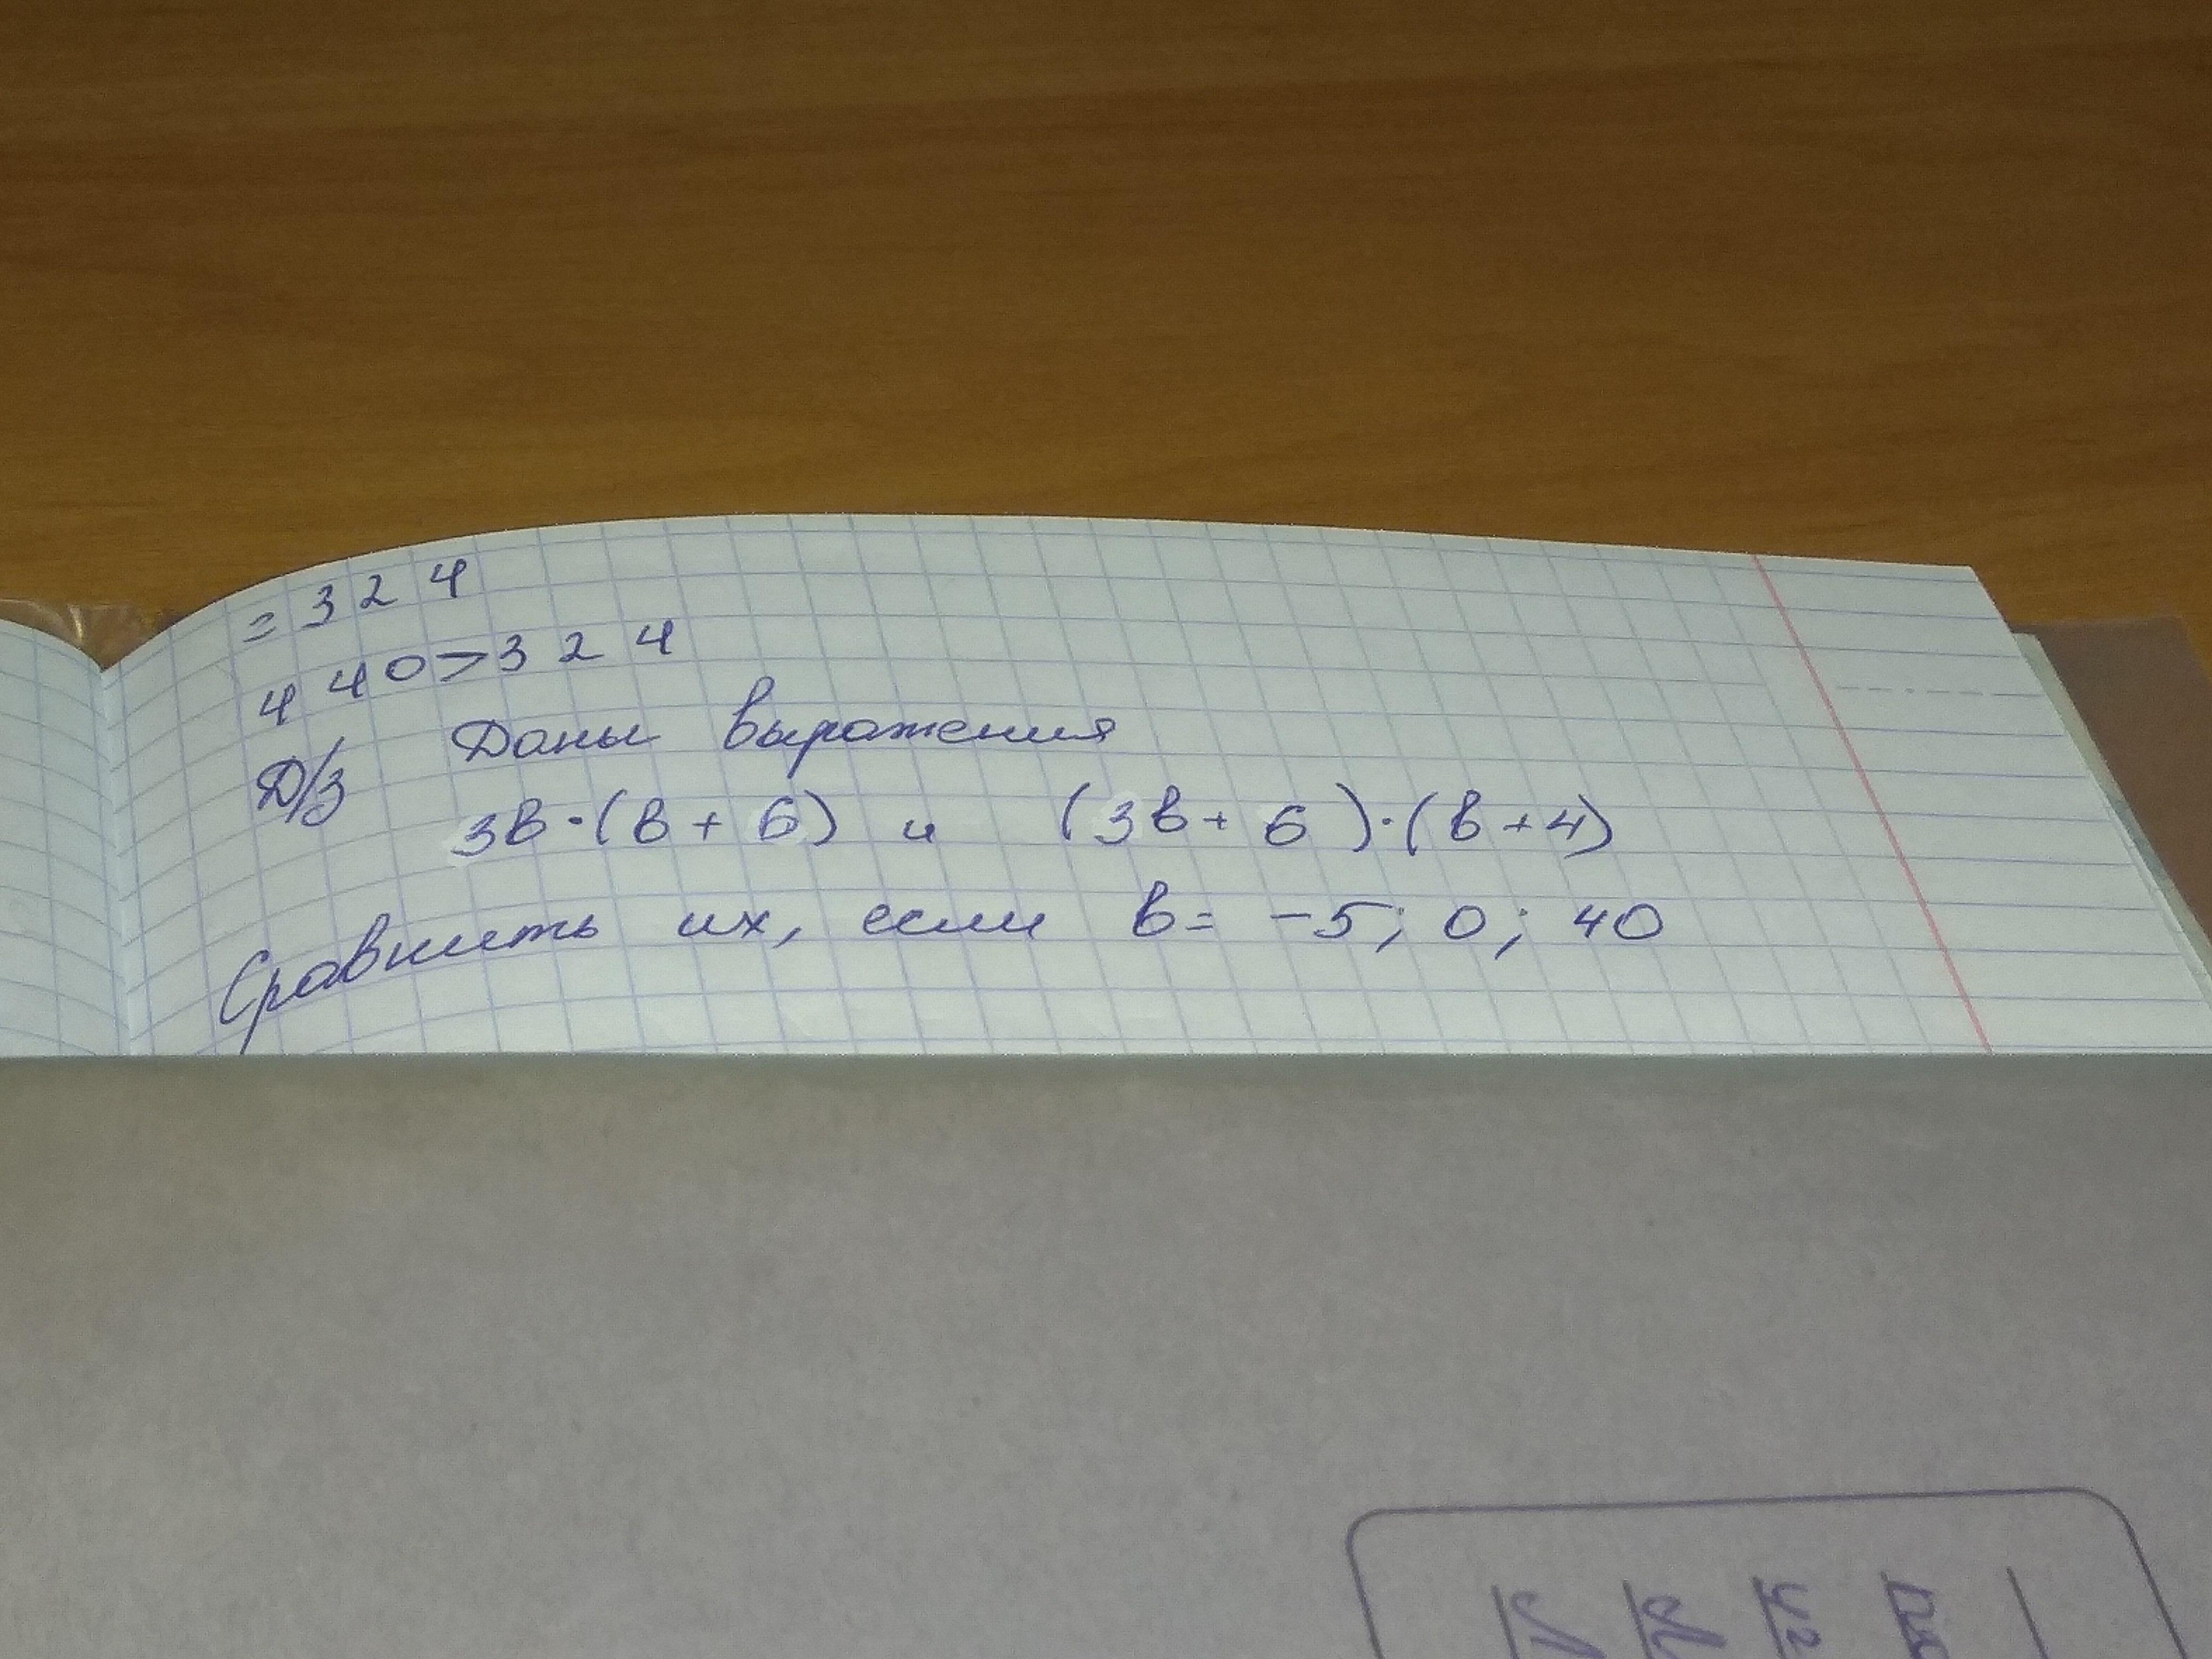 = 3 2 4
4 4 0 > 3 2 4
Д/з Даны выражения
3в·(в + 6) и (3в + 6)·(в + 4)
Сравнить их, если в = -5; 0; 40